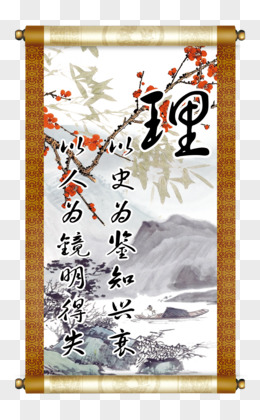 理
以史为鉴知兴衰
以人为镜明得失